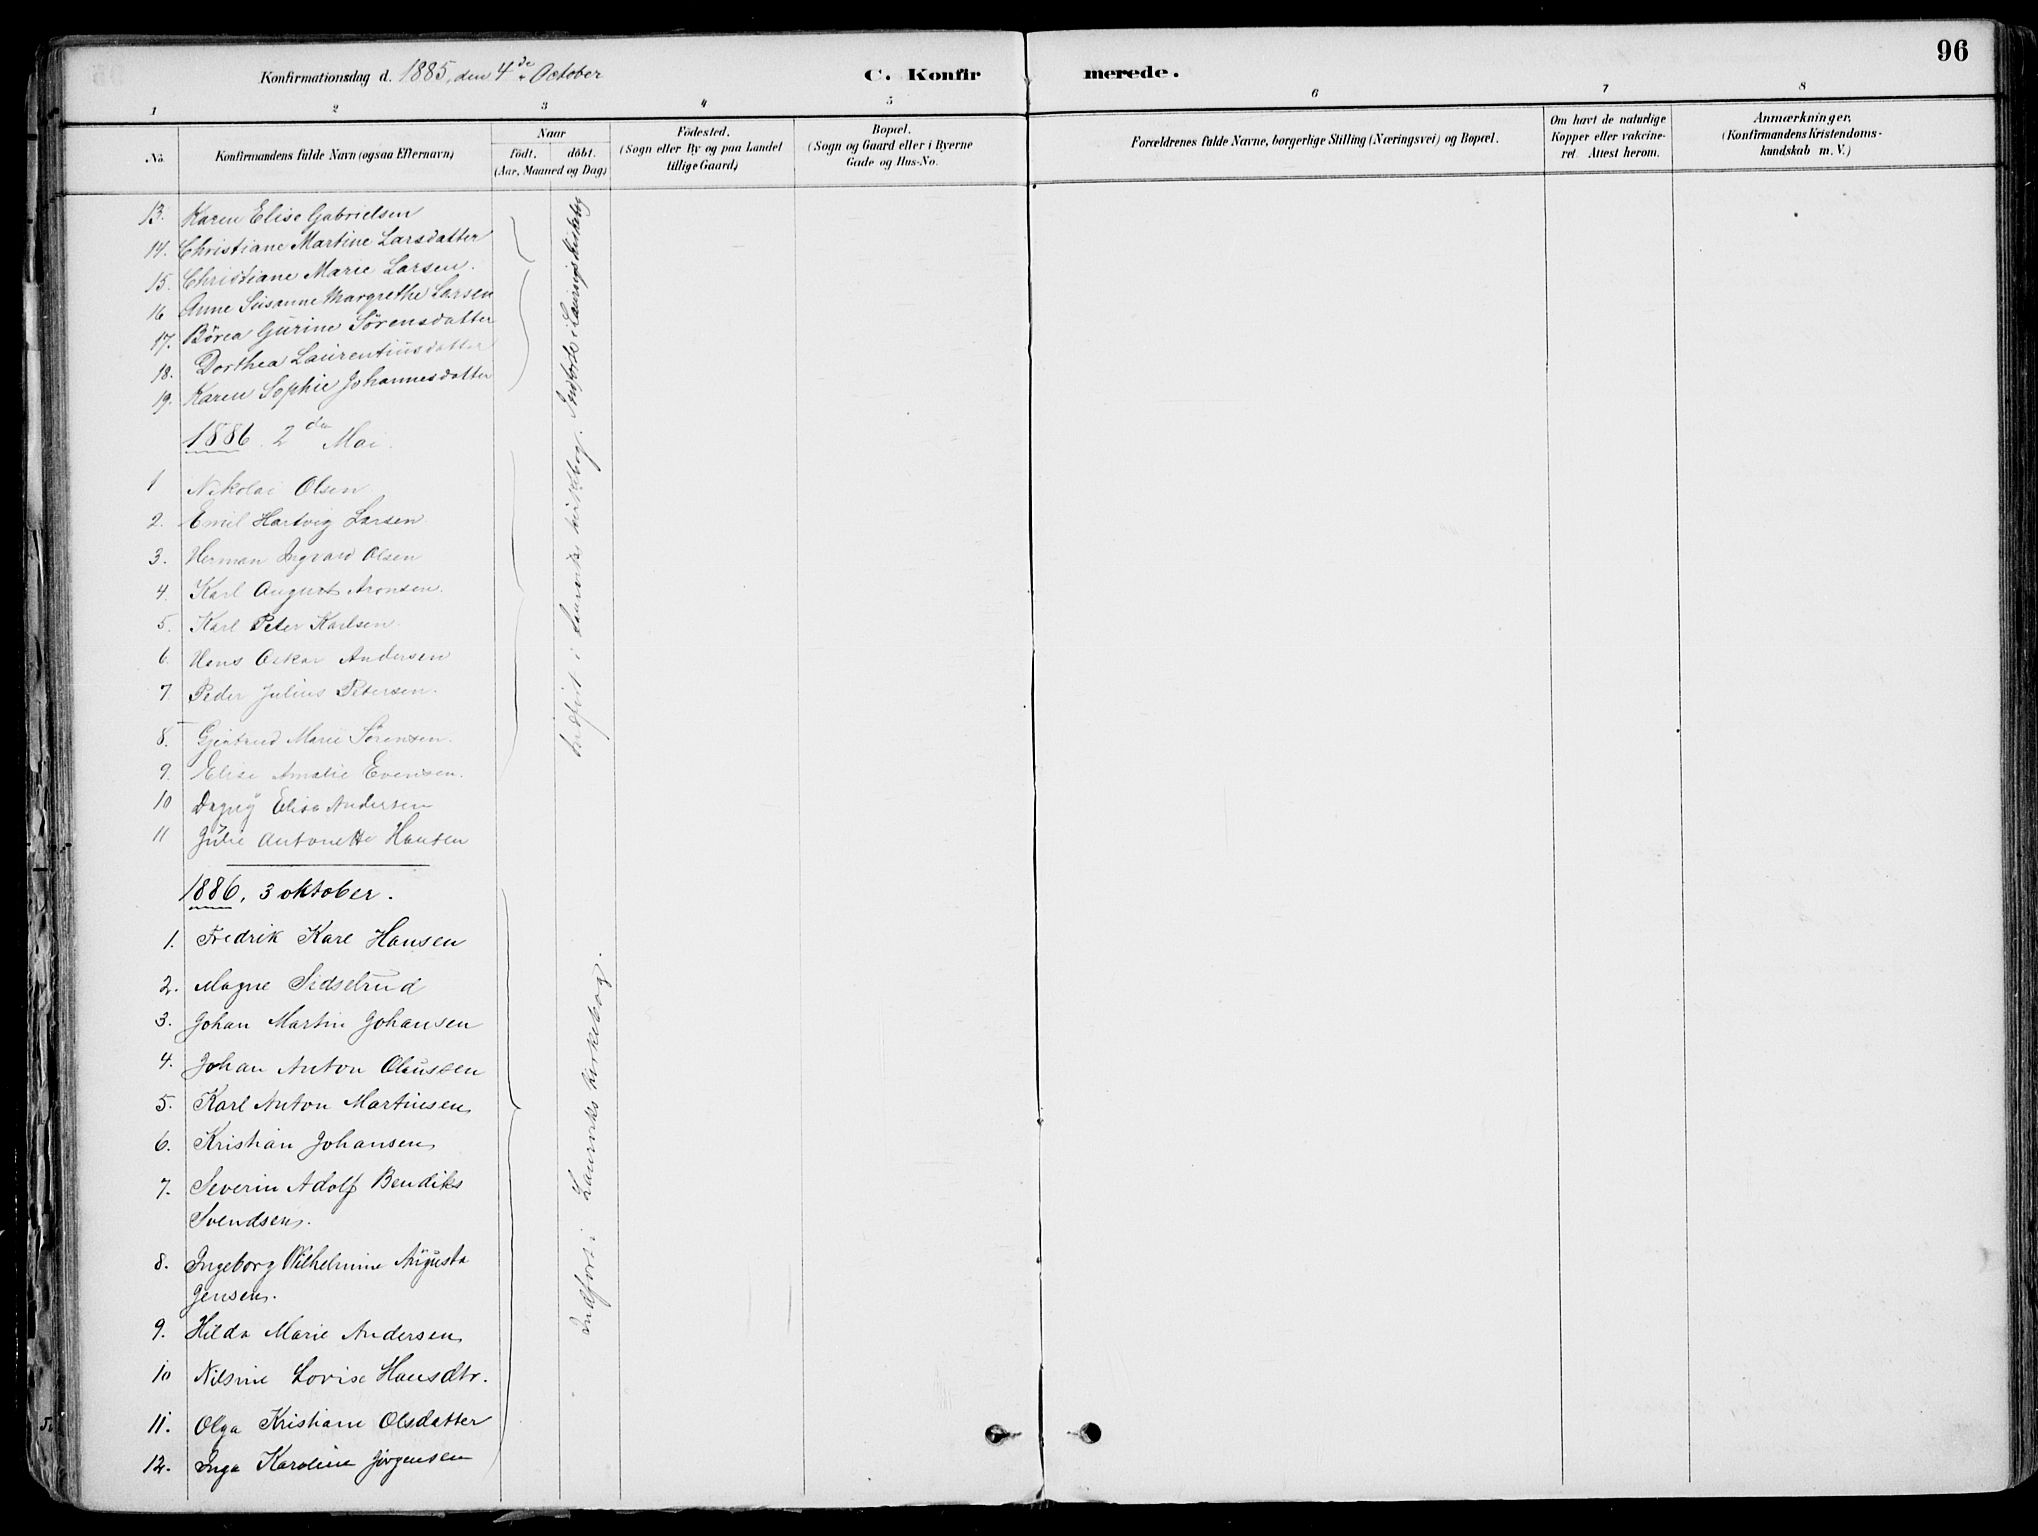 96
Konfirmationsdag d. 1885, den 4de October
C. Konfirmerede.
1 2 3 4 5 6 7 8
No.
Konfirmandens fulde Navn (ogsaa Efternavn)
Naar
födt. döbt.
(Aar, Maaned og Dag)
Födested.
(Sogn eller By og paa Landet
tillige Gaard)
Bopæl.
(Sogn og Gaard eller i Byerne
Gade og Hus-No.
Forældrenes fulde Navne, borgerlige Stilling (Næringsvei) og Bopæl.
Om havt de naturlige
Kopper eller vakcine-
ret. Attest herom.
Anmærkninger.
(Konfirmandens Kristendoms-
kundskab m. V.)
13. Karen Elise Gabrielsen
14. Christiane Martine Larsdatter
15. Christiane Marie Larsen.
16 Anne Susanne Margrethe Larsen
17. Børea Gurine Sørensdatter
18. Dorthea Laurentiusdatter
19. Karen Sophie Johannesdatter
Indførte i Laurvigs Kirkebog
1886. 2den Mai.
1 Nikolai Olsen
2. Emil Hartvig Larsen
3. Herman Ingvard Olsen
4. Karl August Aronsen.
5. Karl Peter Karlsen
6. Hans Oskar Andersen
7. Peder Julius Petersen.
8. Gjertrud Marie Sørensen.
9. Elise Amalie Evensen.
10 Dagny Elise Andersen
11 Julie Antonette Hansen
Indført i Laurviks kirkebog.
1886, 3 oktober.
1. Fredrik Karl Hansen
2. Magne Sidselrud
3. Johan Martin Johansen
4. Johan Anton Olaussen
5. Karl Anton Martinsen
6. Kristian Johansen
7. Severin Adolf Bendiks
Svendsen.
8. Ingeborg Wilhelmine Augusta
Jensen.
9. Hilda Marie Andersen
10 Nilsine Lovise Hansdtr.
11. Olga Kristiane Olsdatter
12. Inga Karoline Jørgensen
Indført i Laurviks kirkebog.